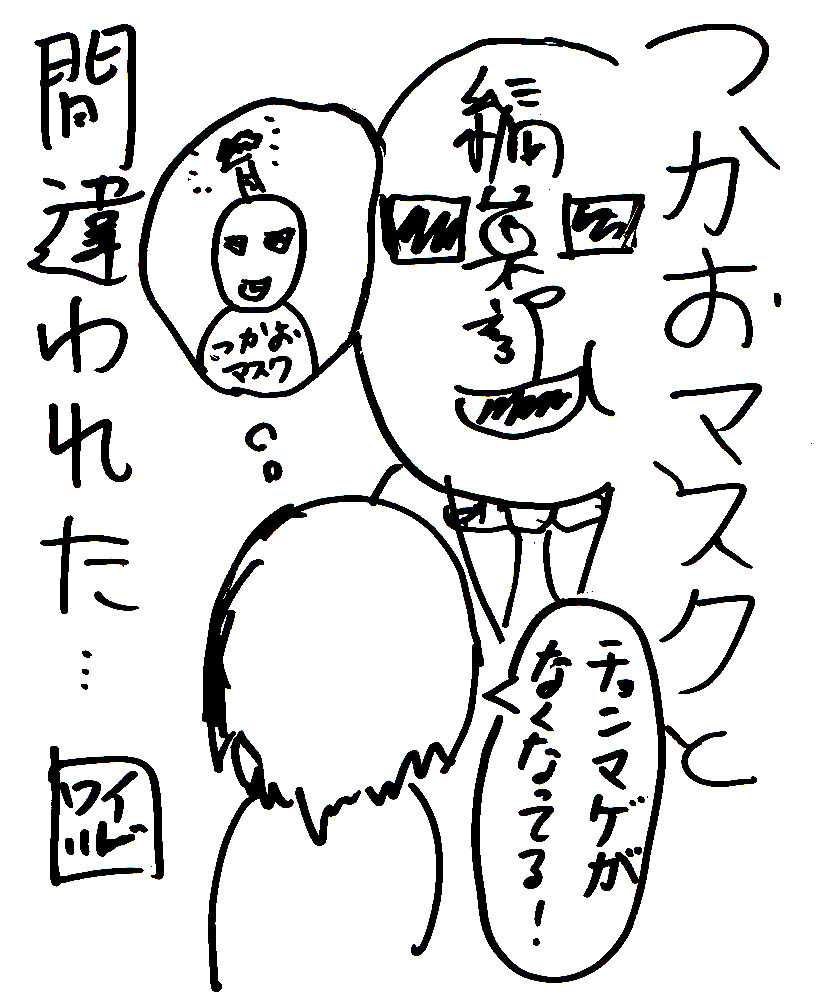 つかおマスクと
間違われた…
編
つかお
マスク
チョンマゲが
なくなってる!
ワイ
ルド